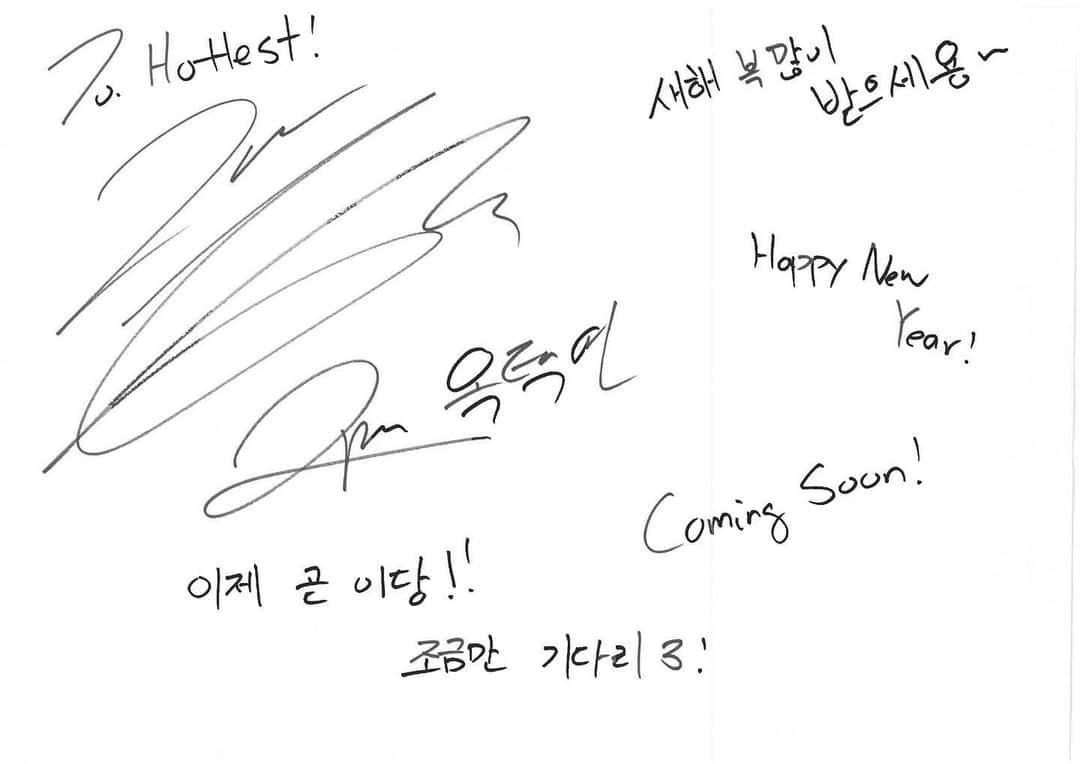 To. Hottest!
새해 복 많이
받으세용~
Happy New
Year!
2pm 옥택연
Coming Soon!
이제 곧 이당!!
조금만 기다리3!